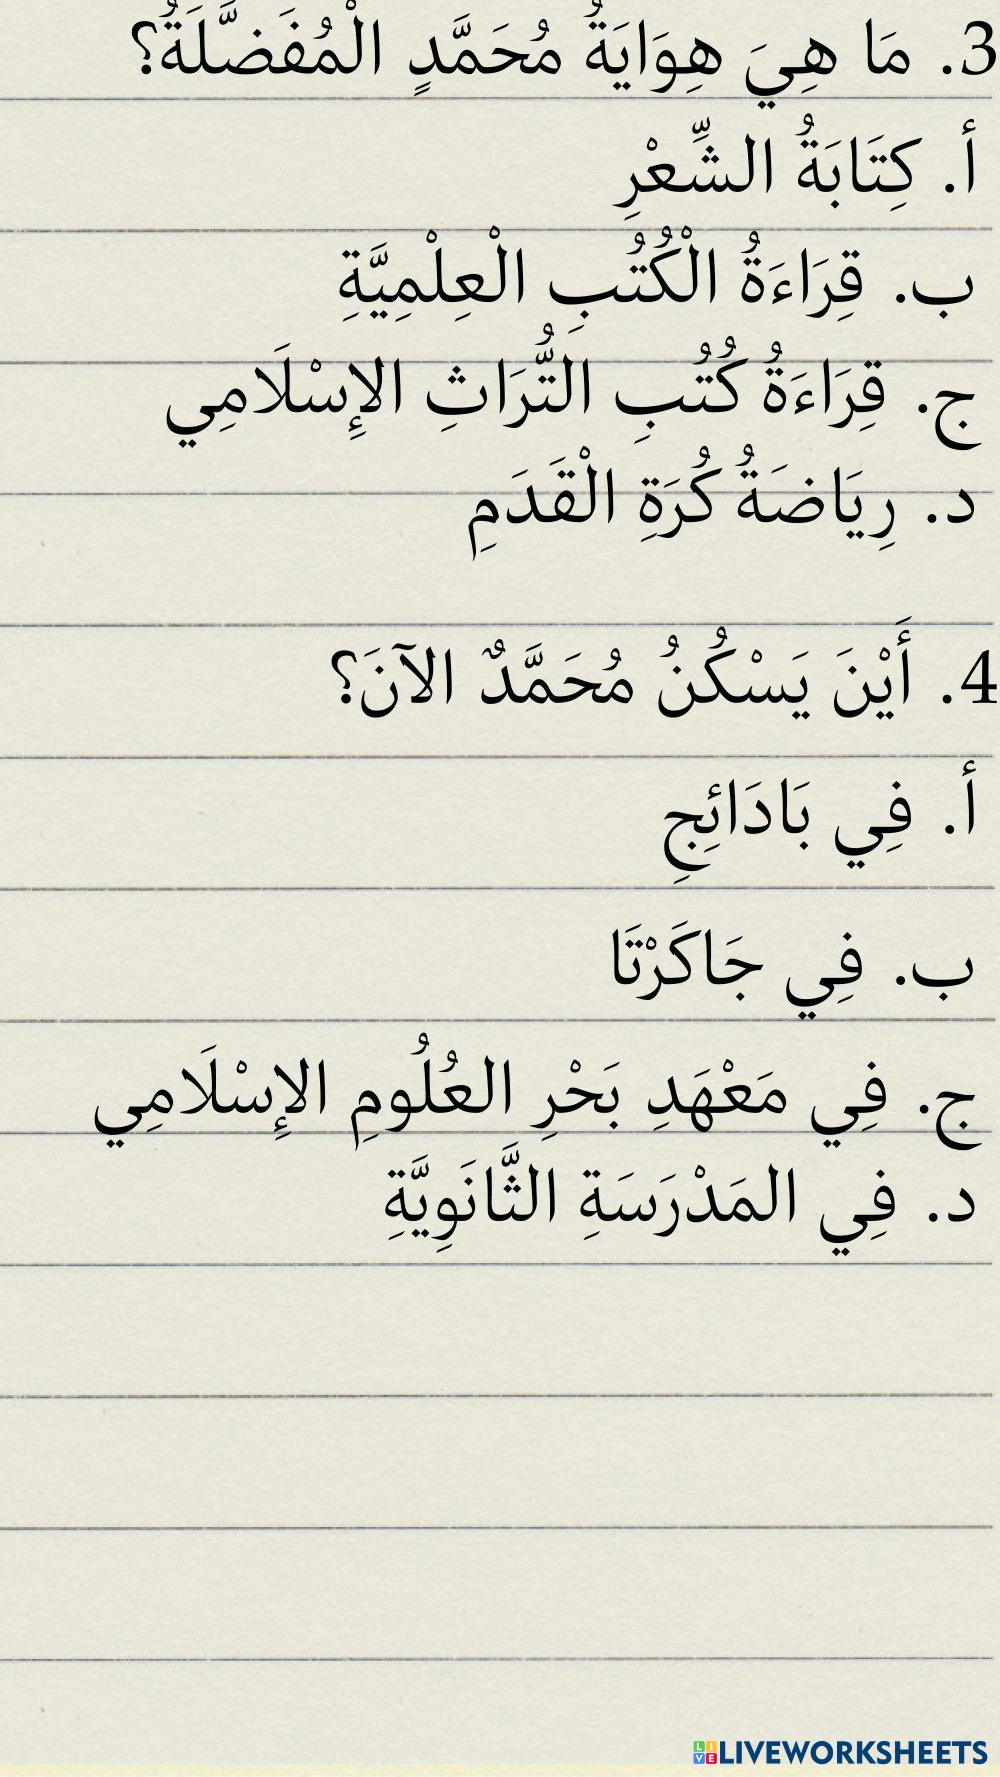 3. مَا هِيَ هِوَايَةُ مُحَمَّدٍ الْمُفَضَّلَةُ؟
أ. كِتَابَةُ الشِّعْرِ
ب. قِرَاءَةُ الْكُتُبِ الْعِلْمِيَّةِ
ج. قِرَاءَةُ كُتُبِ التُّرَاثِ الإِسْلَامِي
د. رِيَاضَةُ كُرَةِ الْقَدَمِ
4. أَيْنَ يَسْكُنُ مُحَمَّدٌ الآنَ؟
أ. فِي بَادَائِجِ
ب. فِي جَاكَرْتَا
ج. فِي مَعْهَدِ بَحْرِ العُلُومِ الإِسْلَامِي
د. فِي المَدْرَسَةِ الثَّانَوِيَّةِ
LIVE LIVEWORKSHEETS